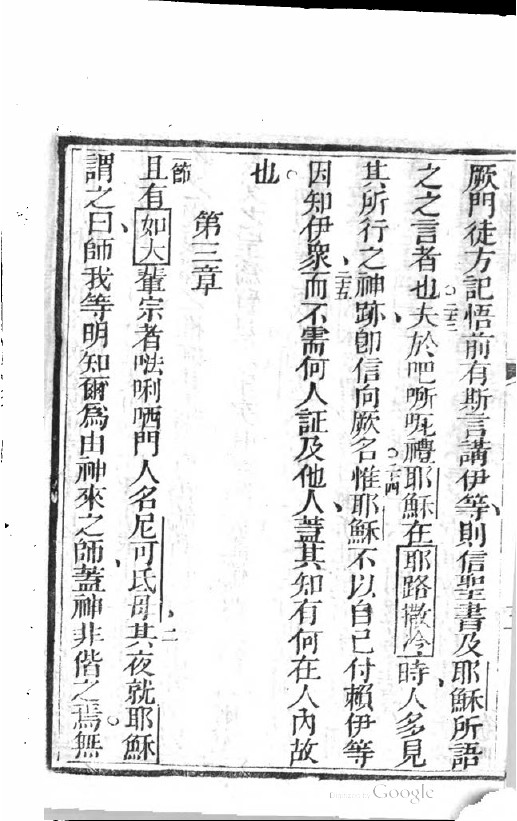 厥門徒方記悟前有斯言講伊等則信聖書及耶穌所語
之之言者也。二三夫於吧𠵽呢禮耶穌在耶路撒冷時人多見
其所行之神跡卽信向厥名。二四惟耶穌不以自己付賴伊等
因知伊衆、二五而不需何人証及他人、蓋其知有何在人內故
也。
第三章
節且有如大輩宗者𠵽唎哂門人名尼可氏母、二其夜就耶穌
謂之曰、師我等明知爾爲由神來之師、蓋神非偕之焉。無
Digitized by Google